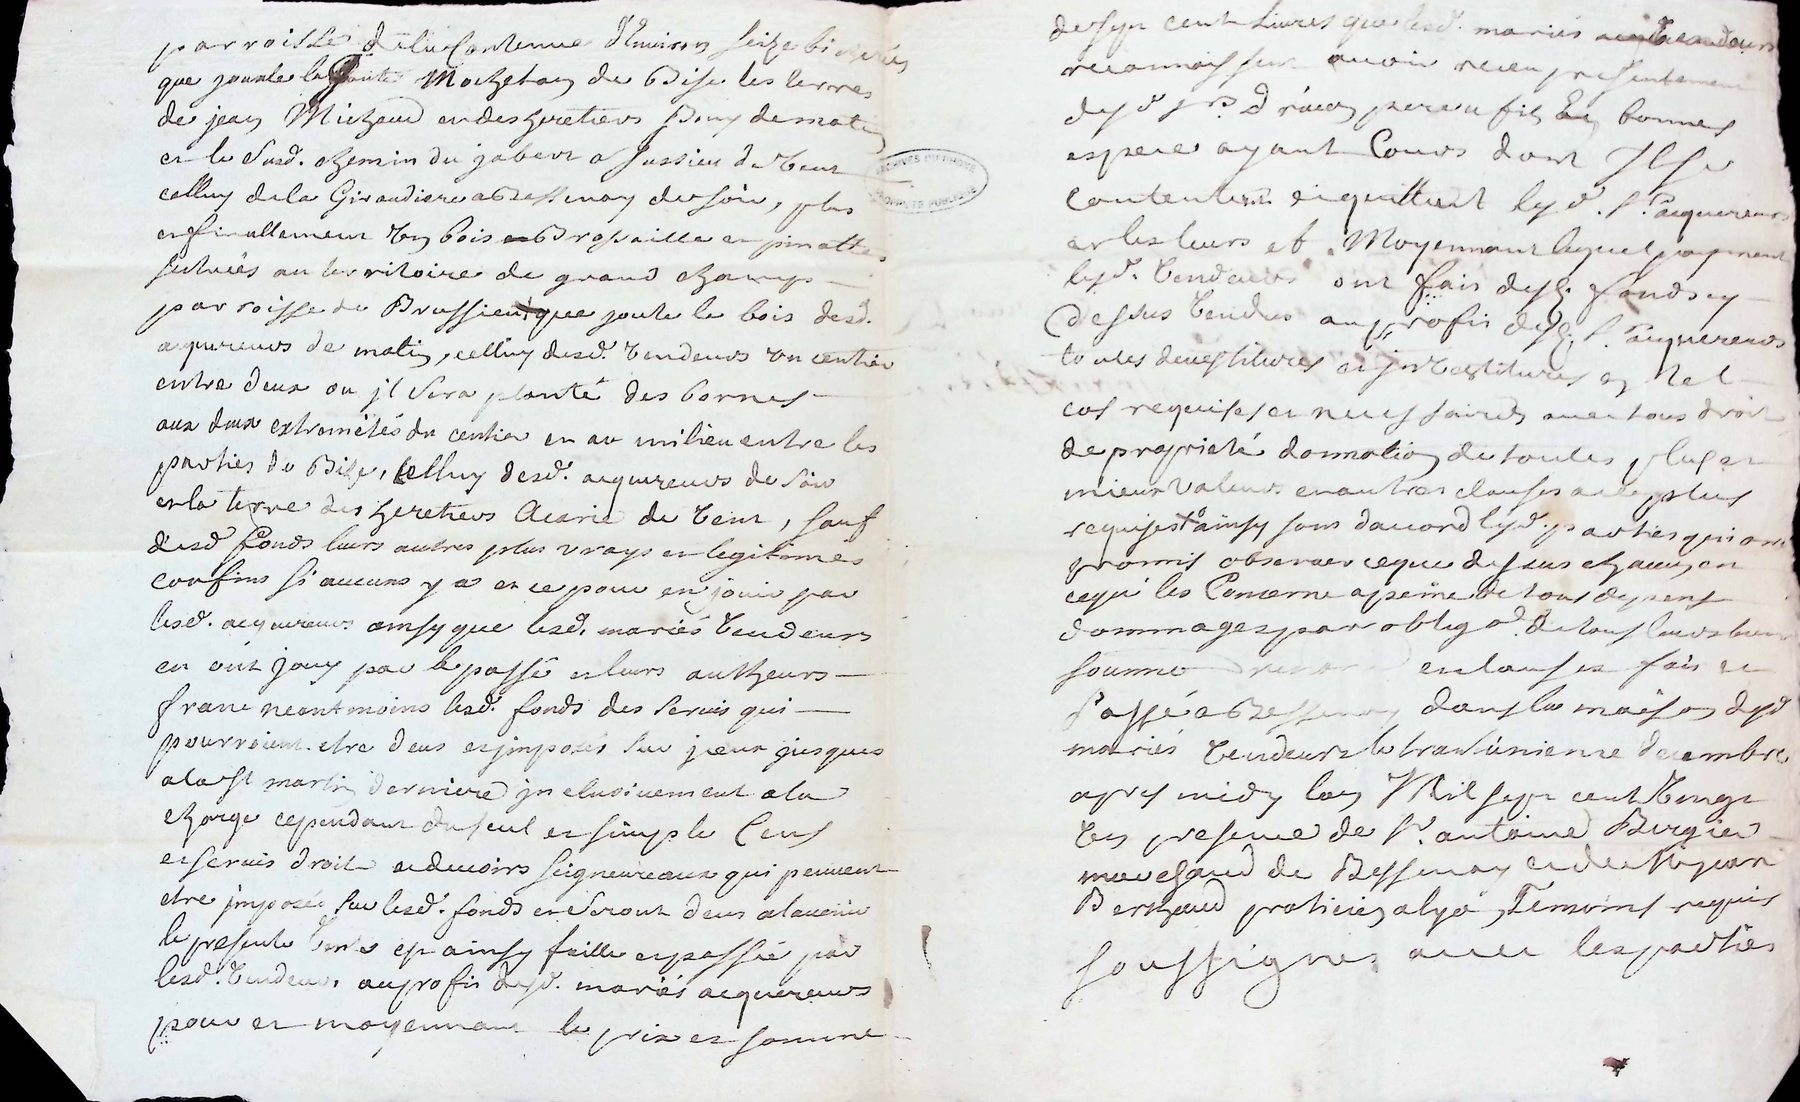 parroisse de la Contenue d'Environ seize bicherées
que jouxte la route Mochetan de Bise les terres
de jean Michaud et des heretiers Bouy de matin
et le susd. chemin du jabert a sussieu de vent
celluy de la Giraudiere a Bessenay de soir, plus
et finallement un bois et Brossaille et pinatte
scitués au territoire de grand champ
parroisse de Brussieu que joute le bois desd.
aquereurs de matin, celluy desd. vendeurs un centier
entre deux ou jl sera planté des bornes
aux deux extremités du centier et au milieu entre les
parties de Bise, celluy desd. acquereurs de soir
et la terre des heretiers Acarie de vent, sauf
desd. fonds leurs autres plus vrays et legitimes
confins si aucuns y a et ce pour en jouir par
lesd. acquereurs ainsy que lesd. mariés vendeurs
en ont jouy par le passé et leurs autheurs
franc neantmoins lesd. fonds des servis qui
pourroient etre deus et jmposés sur jceux jusques
a la st martin derniere jnclusivement a la
charge cependant du seul et simple Cens
et servis droit et devoirs seigneureaux qui peuvent
etre jmposés sur lesd. fonds et seront deus a lavenir
la presente vente est ainsy faitte et passée par
lesd. vendeurs au profit desd. mariés acquereurs
pour et moyennant le prix et somme
de sept cent Livres que lesd. mariés vendeurs
reconnoissent avoir receu presentement
desd. srs. pere et fils En bonnes
espece ayant Cours dont Jls se
contentent et quittent lesd. Srs. acquereurs
et les leurs et. Moyennant lequel payement
lesd. vendeurs ont fait desd. fonds cy
dessus vendus au profit desd. Srs. acquereurs
toutes devestitures et jnvestitures en tel
cas requises et necessaires avec tous droit
de proprieté donnation de toutes plus et
mieux valeurs et autres clauses a ce plus
requises et ainsy sont daccord lesd. parties qui ont
promis observer ce que dessus chacun en
ce qui les Concerne a peine de tous depens
dommages par obligaon. de tous leurs biens
soumis et clauses fait et
Passé a Bessenay dans la maison desd.
mariés vendeurs le trantunieme decembre
apres midy lan Mil sept cent vingt
en presence de Sr. antoine Burgier
marchand de Bessenay et de Me jean
Berthaud praticien a lyon Temoins requis
soussignes avec les parties